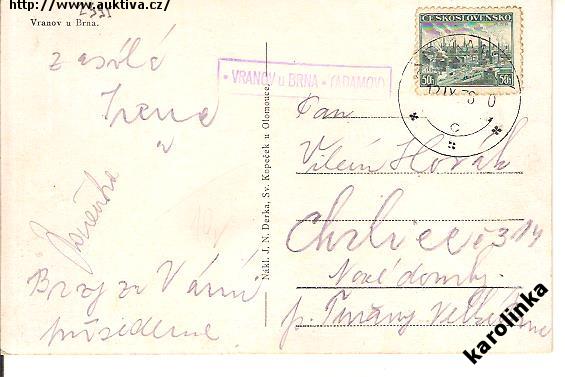 http://www.auktiva.cz/
Vranov u Brna.
zasílá
Irena
a
Brzo za Vámi
přísedeme
Nákl. J. N. Derka, Sv. Kopeček u Olomouce.
• VRANOV u BRNA • (ADAMOV)
ČESKOSLOVENSKO
50h 50h
Pan
Vilém Horák
Chrlice č 314
Nové domky
p. Tuřany
karolinka